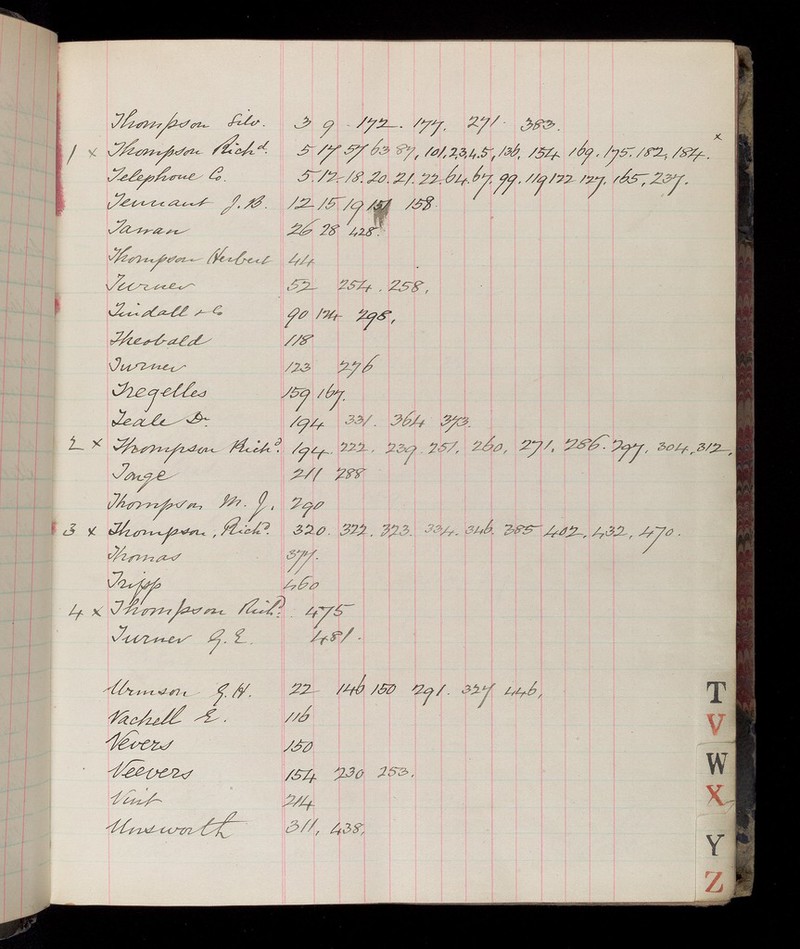 Thompson Silv. 3 9 - 172. 177. 271. 383.
1 x Thompson Richd. 5 17 57 63 87, 101,2,3,4,5, 136, 154 169. 175. 182, 184. x
Telephone Co. 5. 12-18. 20. 21. 22-64. 67. 99. 119 122 127. 165, 237.
Tennant J. B. 12 15 19 151 158
Tawan 26 28 428.
Thompson Herbert 44
Turner 52 254. 258.
Tindall & Co 90 124 298.
Theobald 118
Turner 123 276
Tregelles 159 167.
Teale Dr. 194 331. 364 373.
2 x Thompson Richd. 194. 222. 239. 251. 260, 271. 286. 297. 304. 312.
Tonge 211 288
Thompson M. J. 290
3 x Thompson, Richd. 320. 322. 323. 334. 346. 385 402. 432. 470.
Thomas 377.
Tripp 460
4 x Thompson Richd. 475
Turner G. E. 481.
Urmson G. H. 22 146 150 291. 327 446.
Vachell E. 116
Vevers 150
Veevers 154 230 253.
Vint 214
Unsworth 311. 438.
T
V
W
X
Y
Z